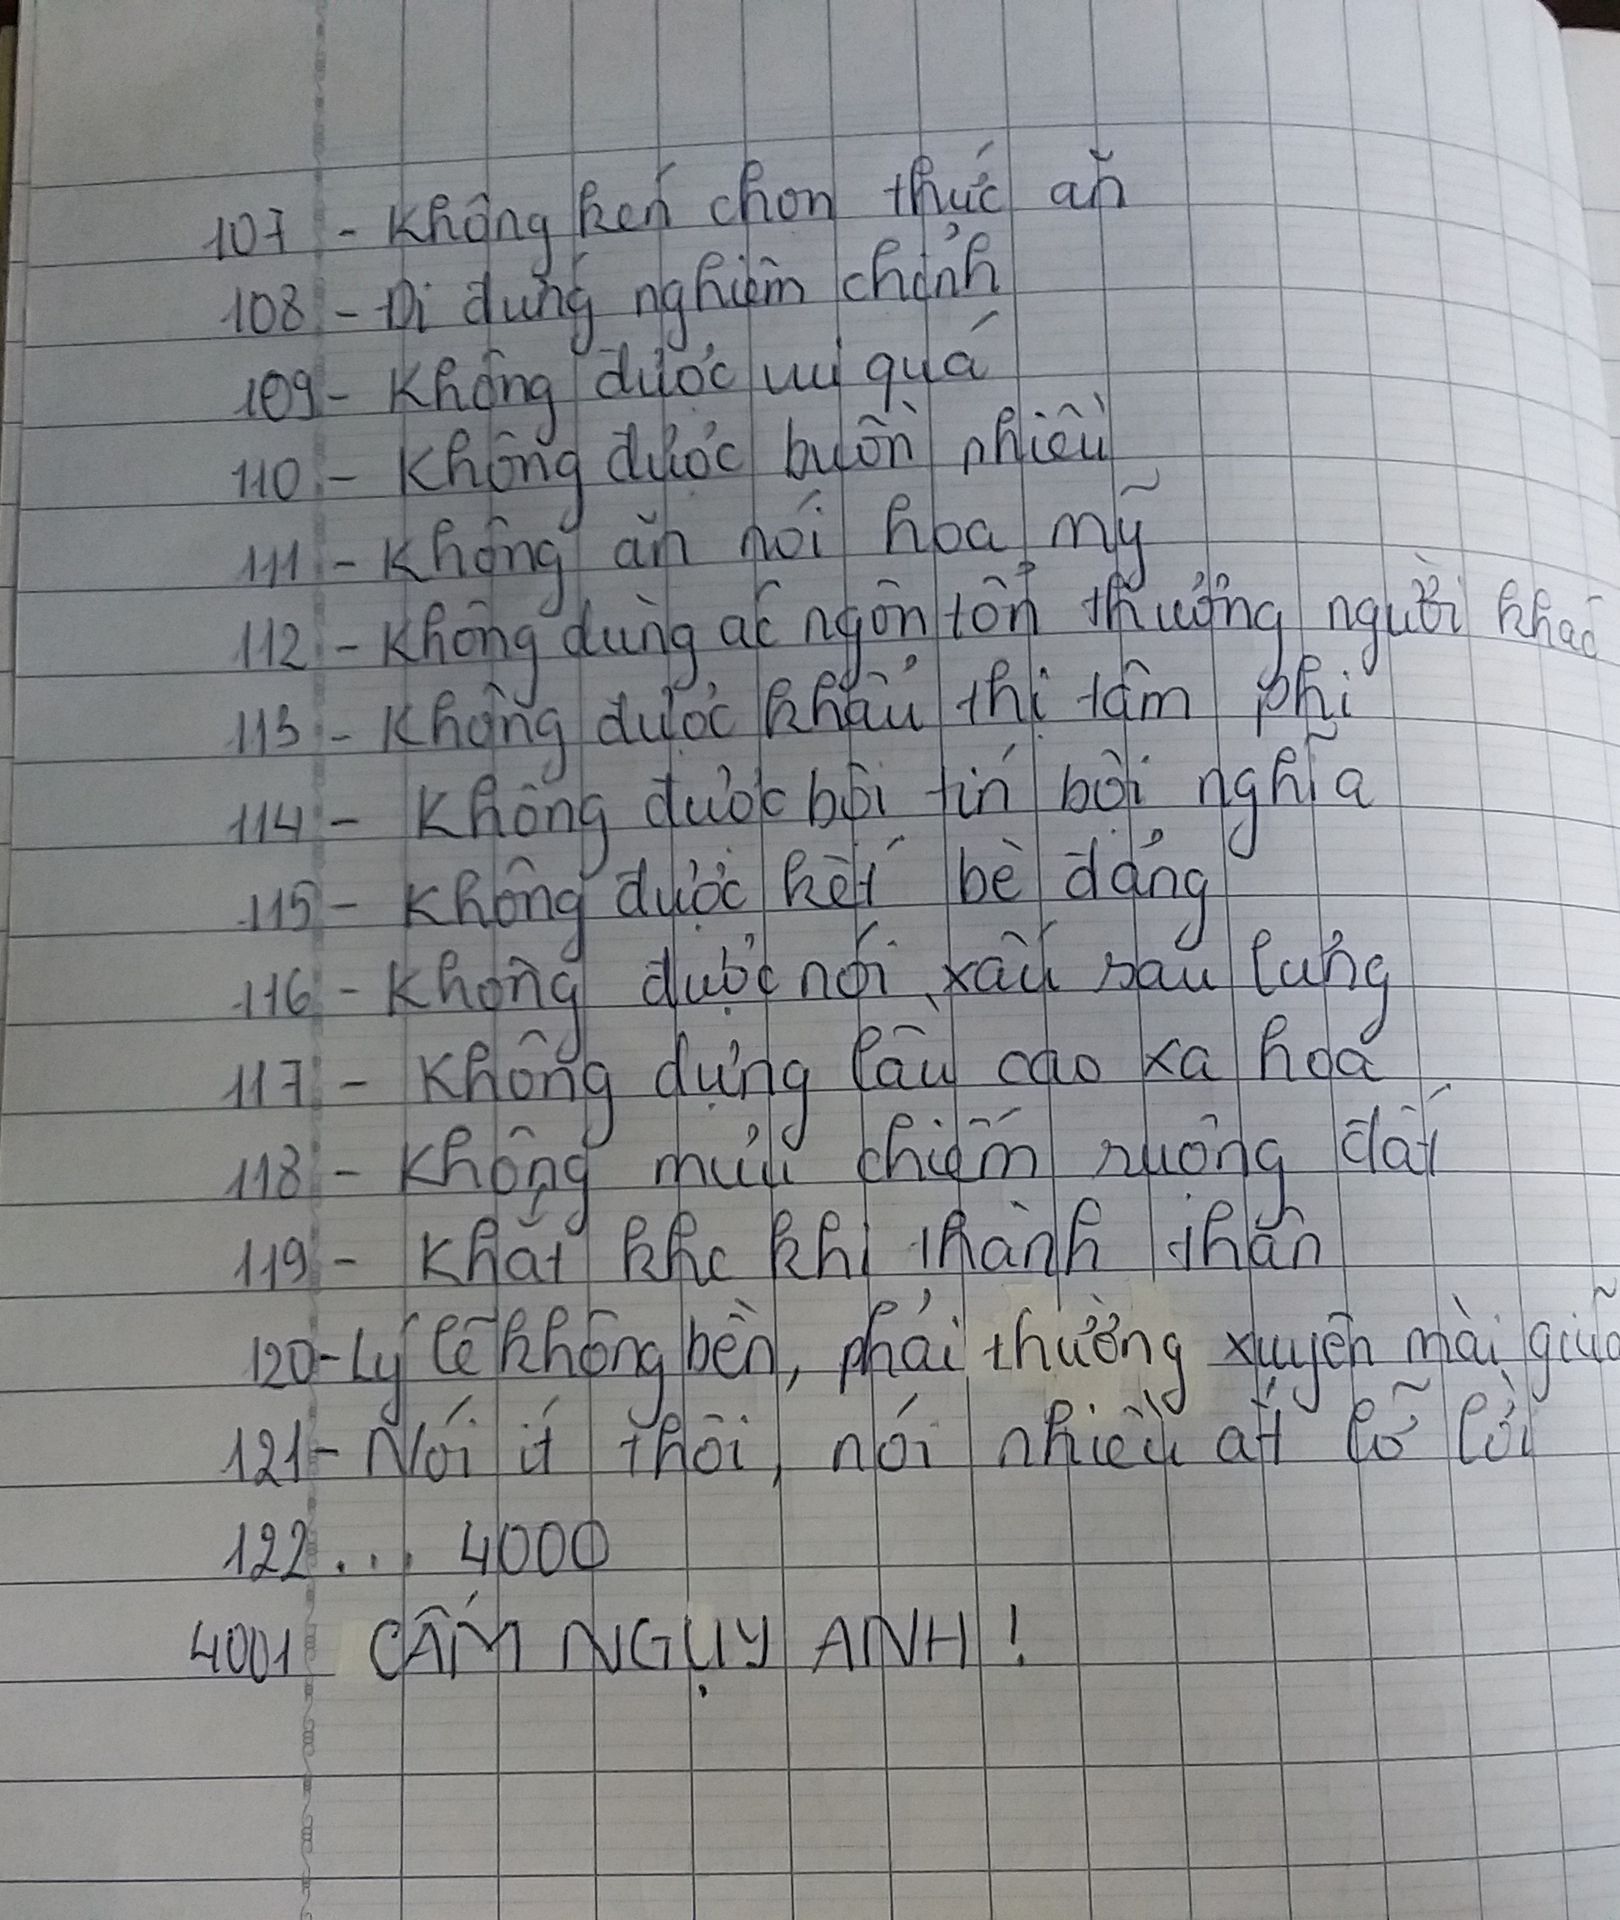 107 - Không kén chọn thức ăn
108 - Đi đứng nghiêm chỉnh
109 - Không được vui quá
110 - Không được buồn nhiều
111 - Không ăn nói hoa mỹ
112 - Không dùng ác ngôn tổn thương người khác
113 - Không được khẩu thị tâm phi
114 - Không được bội tín bội nghĩa
115 - Không được kết bè đảng
116 - Không được nói xấu sau lưng
117 - Không dựng lầu cao xa hoá
118 - Không mưu chiếm ruộng đất
119 - Khắt khe khi thành thân
120 - Lý lẽ không bền, phải thường xuyên mài giũa
121 - Nói ít thôi, nói nhiều ắt lỡ lời
122 ... 4000
4001 CẤM NGỤY ANH !